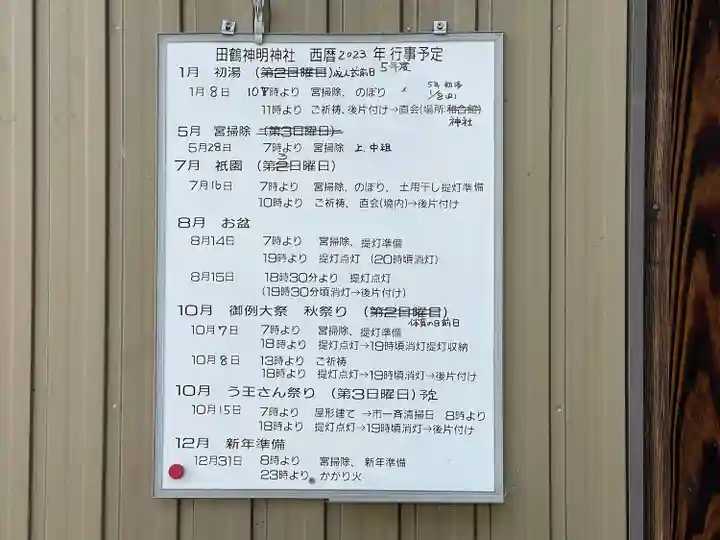 田鶴神明神社 西暦2023年行事予定
1月 初湯 (第2日曜日)成人式前日 5年度
1月8日 10時より 宮掃除、のぼり 5年 初湯 1/8(日)
11時より ご祈祷、後片付け→直会(場所:和合館) 神社
5月 宮掃除 (第3日曜日)
5月28日 7時より 宮掃除 上.中組
7月 祇園 (第3日曜日)
7月16日 7時より 宮掃除、のぼり、土用干し提灯準備
10時より ご祈祷、直会(境内)→後片付け
8月 お盆
8月14日 7時より 宮掃除、提灯準備
19時より 提灯点灯 (20時頃消灯)
8月15日 18時30分より 提灯点灯
(19時30分頃消灯→後片付け)
10月 御例大祭 秋祭り (第2日曜日)
体育の日前日
10月7日 7時より 宮掃除、提灯準備
18時より 提灯点灯→19時頃消灯提灯収納
10月8日 13時より ご祈祷
18時より 提灯点灯→19時頃消灯→後片付け
10月 う王さん祭り (第3日曜日)予定
10月15日 7時より 屋形建て →市一斉清掃日 8時より
18時より 提灯点灯→19時頃消灯→後片付け
12月 新年準備
12月31日 8時より 宮掃除、新年準備
23時より かがり火